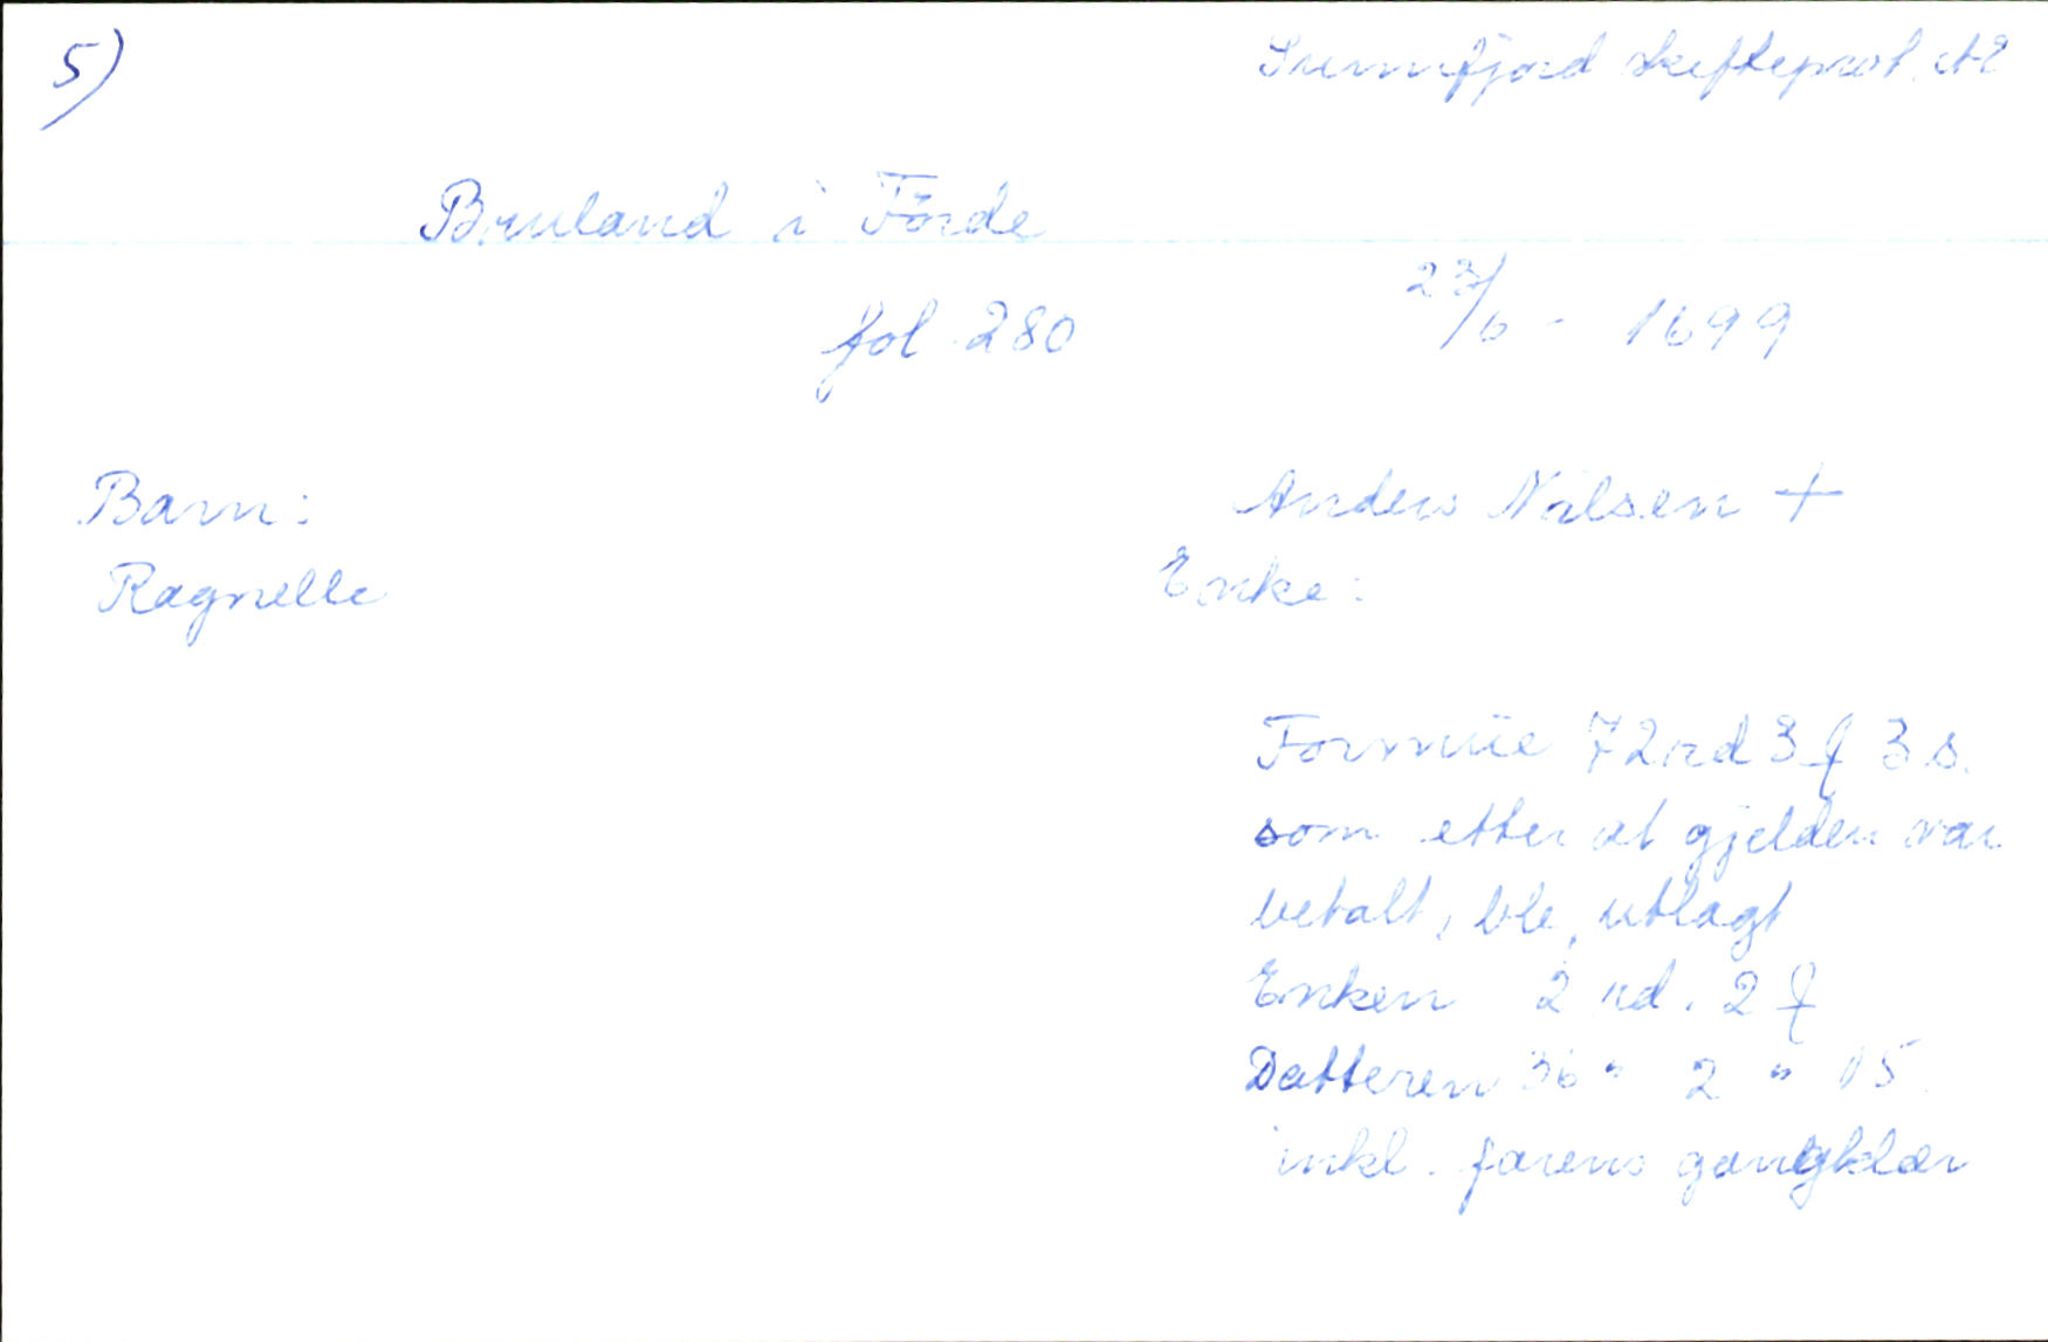 5)
Sunnfjord skifteprot. A2
Bruland i Förde
fol. 280 23/6 - 1699
Barn: Anders Nilsen +
Ragnelle Enke:
Formüe 72 rd 3 ƒ 3 s.
som etter at gjelden var
betalt, ble, utlagt
Enken 2 rd. 2 ƒ
Datteren 36 " 2 " 15
inkl. farens gangklær